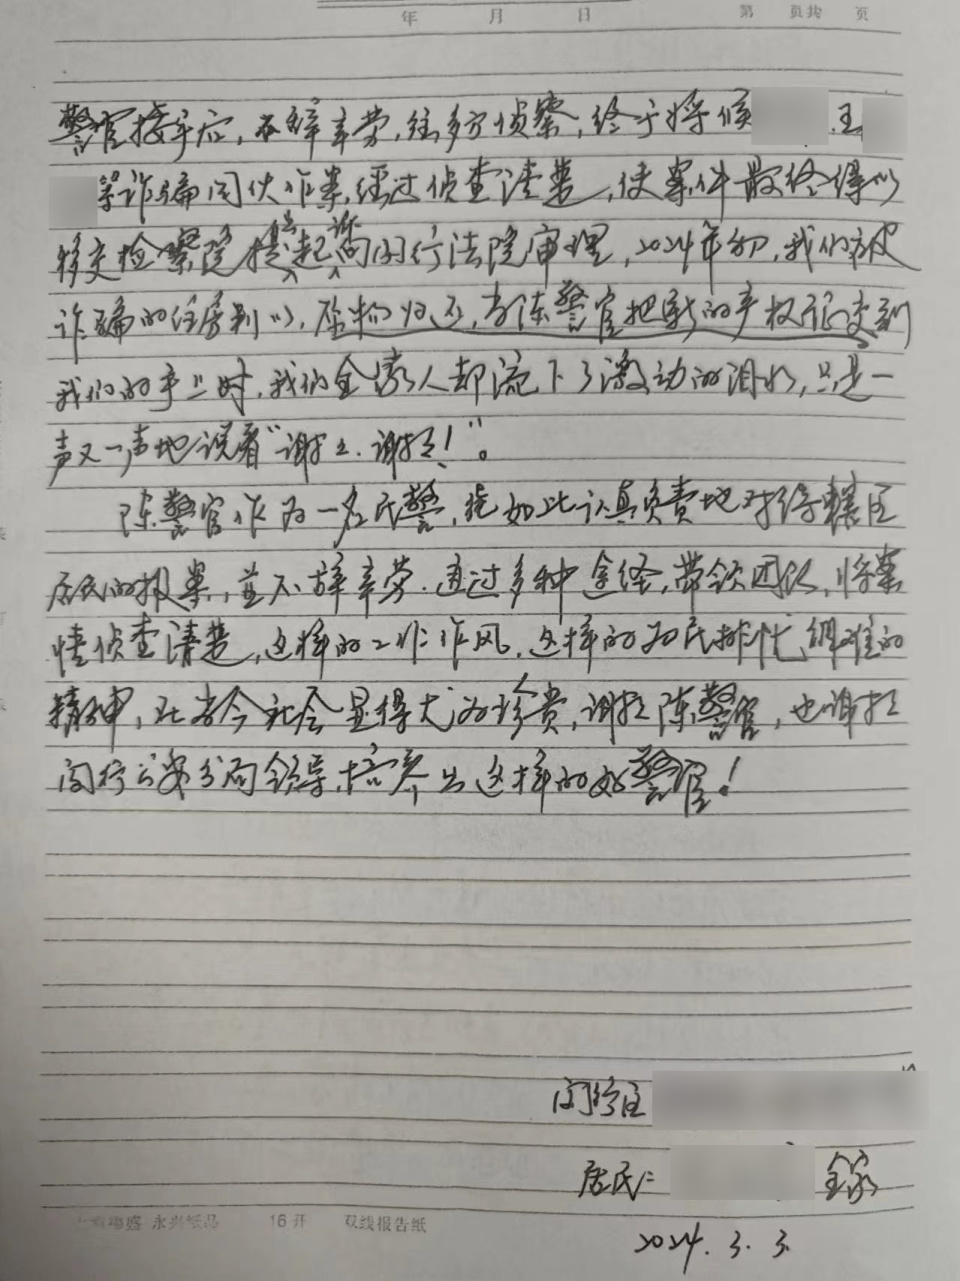 年 月 日 第 页共 页
警官接手后，不辞辛劳，经多方侦察，终于将侯 、王
等诈骗团伙作案经过侦查清楚，使案件最终得以
移交检察院提起公诉向闵行法院审理，2024年初，我们被
诈骗的住房判以，原物归还，当陈警官把新的产权证交到
我们的手上时，我们全家人却流下了激动的泪水，只是一
声又一声地说着“谢谢，谢谢！”。
陈警官作为一名民警，能如此认真负责地对待辖区
居民的报案，并不辞辛劳，通过多种途经，带领团队，将案
情侦查清楚，这样的工作作风，这样的为民排忧解难的
精神，在当今社会显得尤为珍贵，谢谢陈警官，也谢谢
闵行公安分局领导，培养出这样的好警官！
闵行区
居民： 全家
2024.3.3.
永兴纸品 16开 双线报告纸